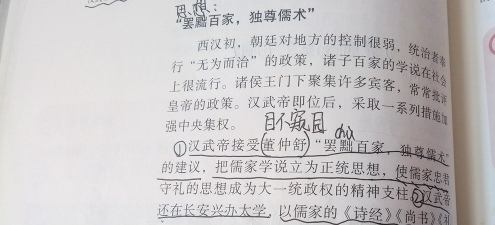 思想：
“罢黜百家，独尊儒术”
西汉初，朝廷对地方的控制很弱，统治者奉
行“无为而治”的政策，诸子百家的学说在社会
上很流行。诸侯王门下聚集许多宾客，常常批评
皇帝的政策。汉武帝即位后，采取一系列措施加
强中央集权。 目不窥园 chù
①汉武帝接受董仲舒“罢黜百家，独尊儒术”
的建议，把儒家学说立为正统思想，使儒家忠君
守礼的思想成为大一统政权的精神支柱②汉武帝
还在长安兴办太学，以儒家的《诗经》《尚书》《礼